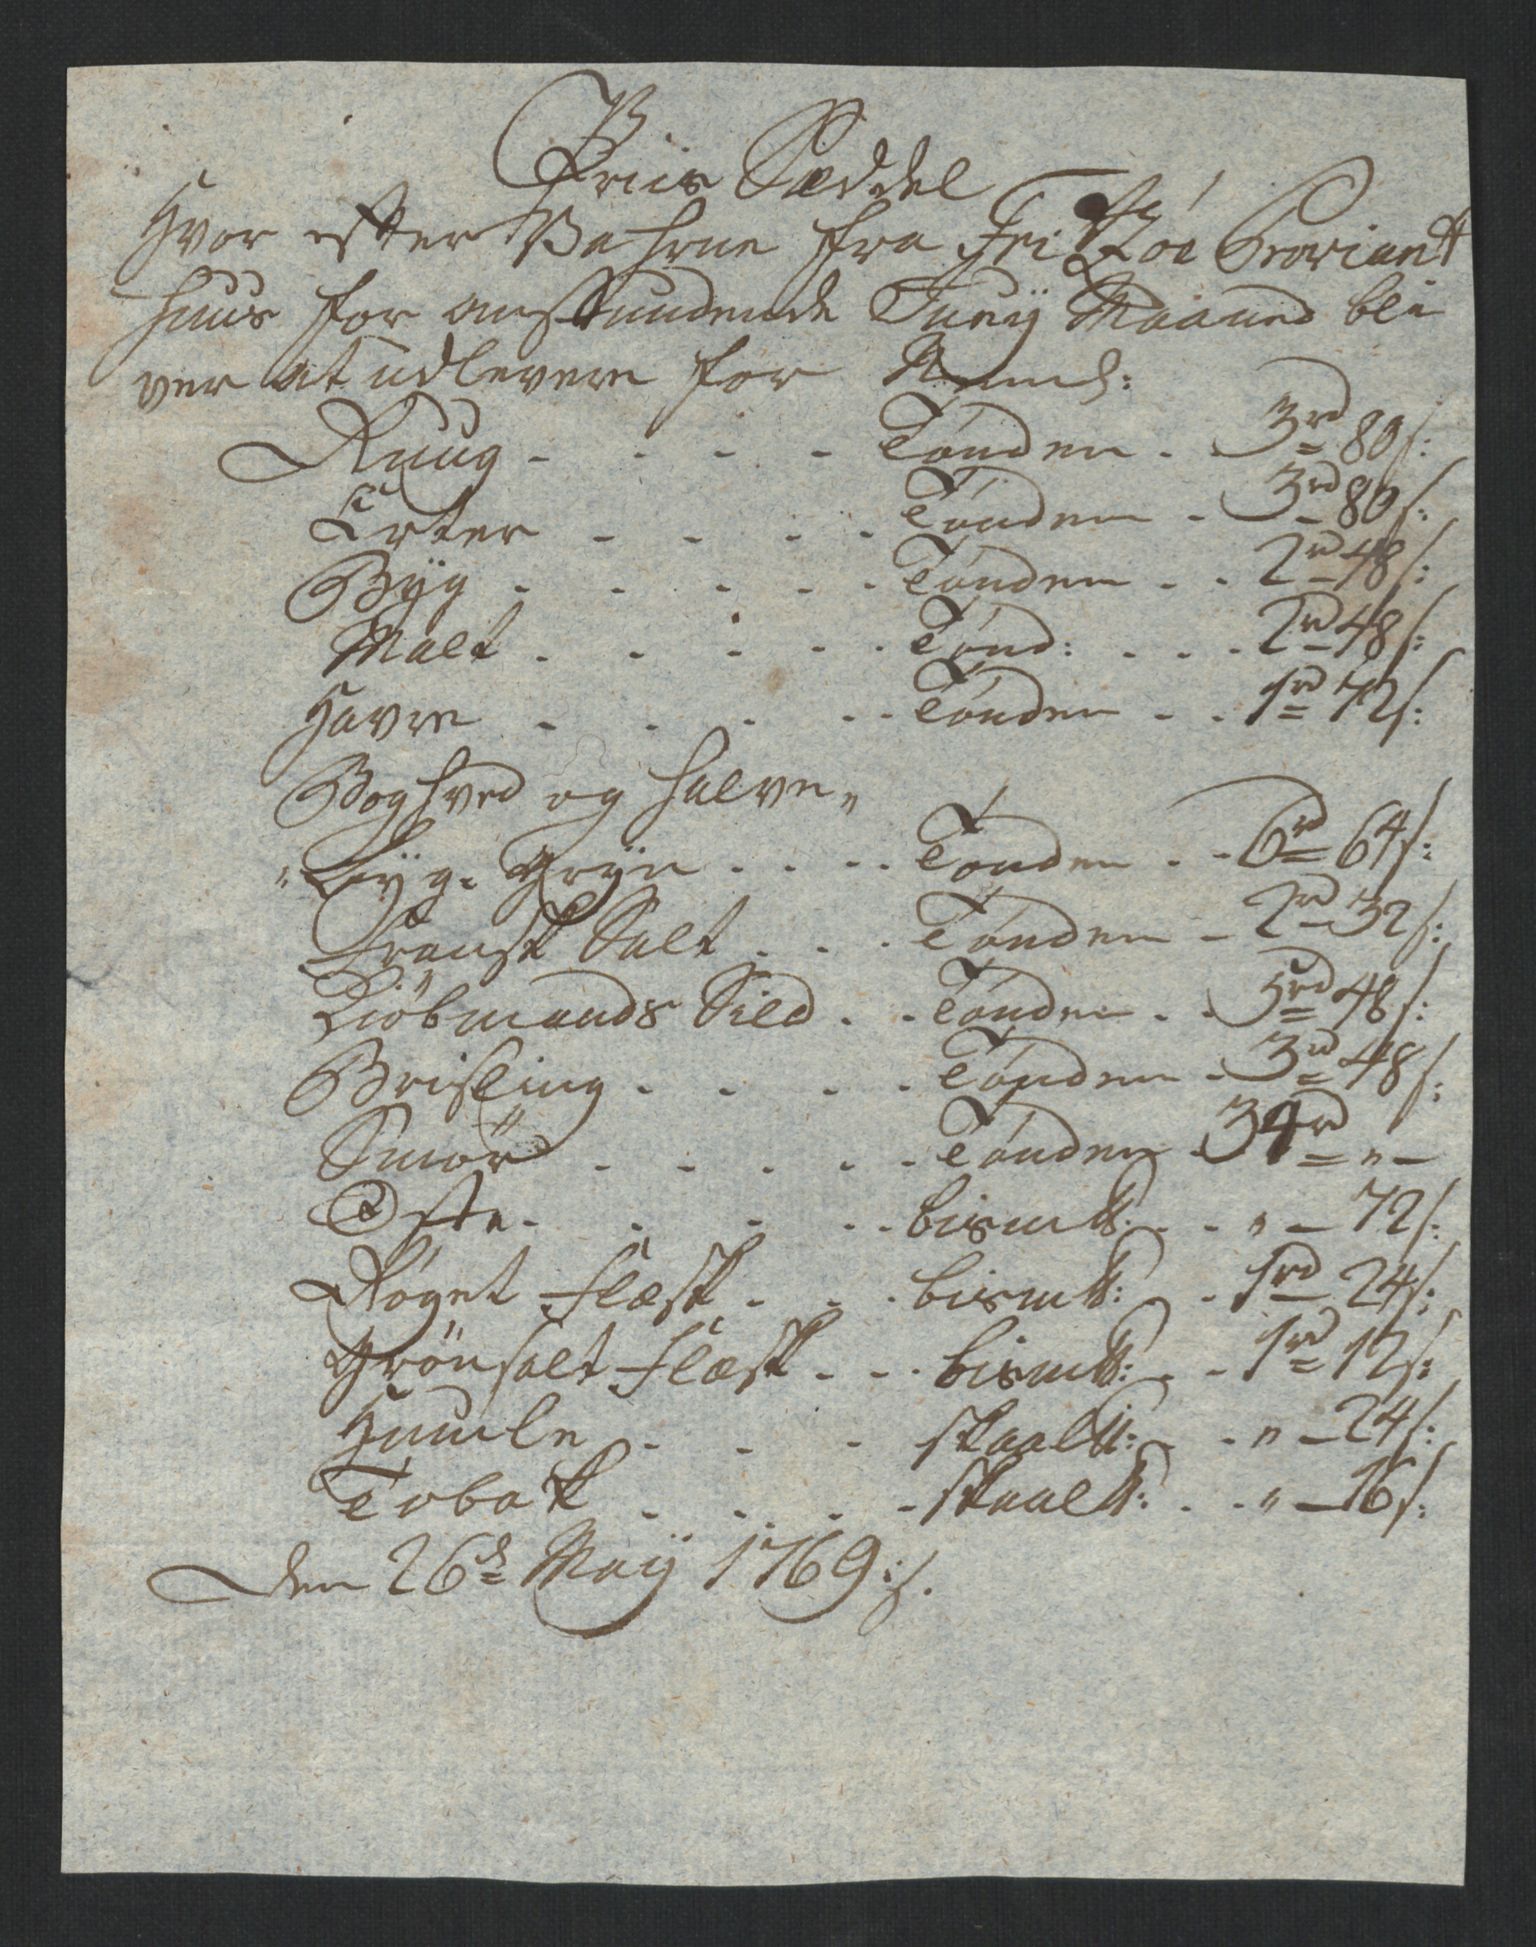 Priis Sæddel
Hvor efter Vahrne fra Fritzöe Proviant
huus for anstundende Juny Maaned bli
ver at udlevere for Nemlig:
Ruug - - - - Tønden - 3rd 80s:
Erter - - - - Tønden - 3rd 80s:
Byg - - - - - Tønden - - 2rd 48s:
Malt - - - - - Tønd: - - - 2rd 48s:
Havre - - - - - Tønden - - 1rd 72s:
Boghved og halve„
„Byg- Gryn - - - - Tønden - - 6rd 64s:
Fransk Salt - - - Tønden - 2rd 32s:
Kiöbmands Sild - - Tønden - - 5rd 48s:
Brisling - - - - Tønden - 3rd 48s:
Smör - - - - - Tønden 34rd „ -
Oste - - - - - bismt℔: - - „ - 72s:
Røget Flæsk - - - bism℔: - - 1rd 24s:
Grönsalt Flæsk - - - bism℔: - - 1rd 12s:
Humle - - - skaal℔: - - „ - 24s:
Tobak - - - - skaal℔: - - „ - 16s:
Den 26de Maÿ 1769:/.